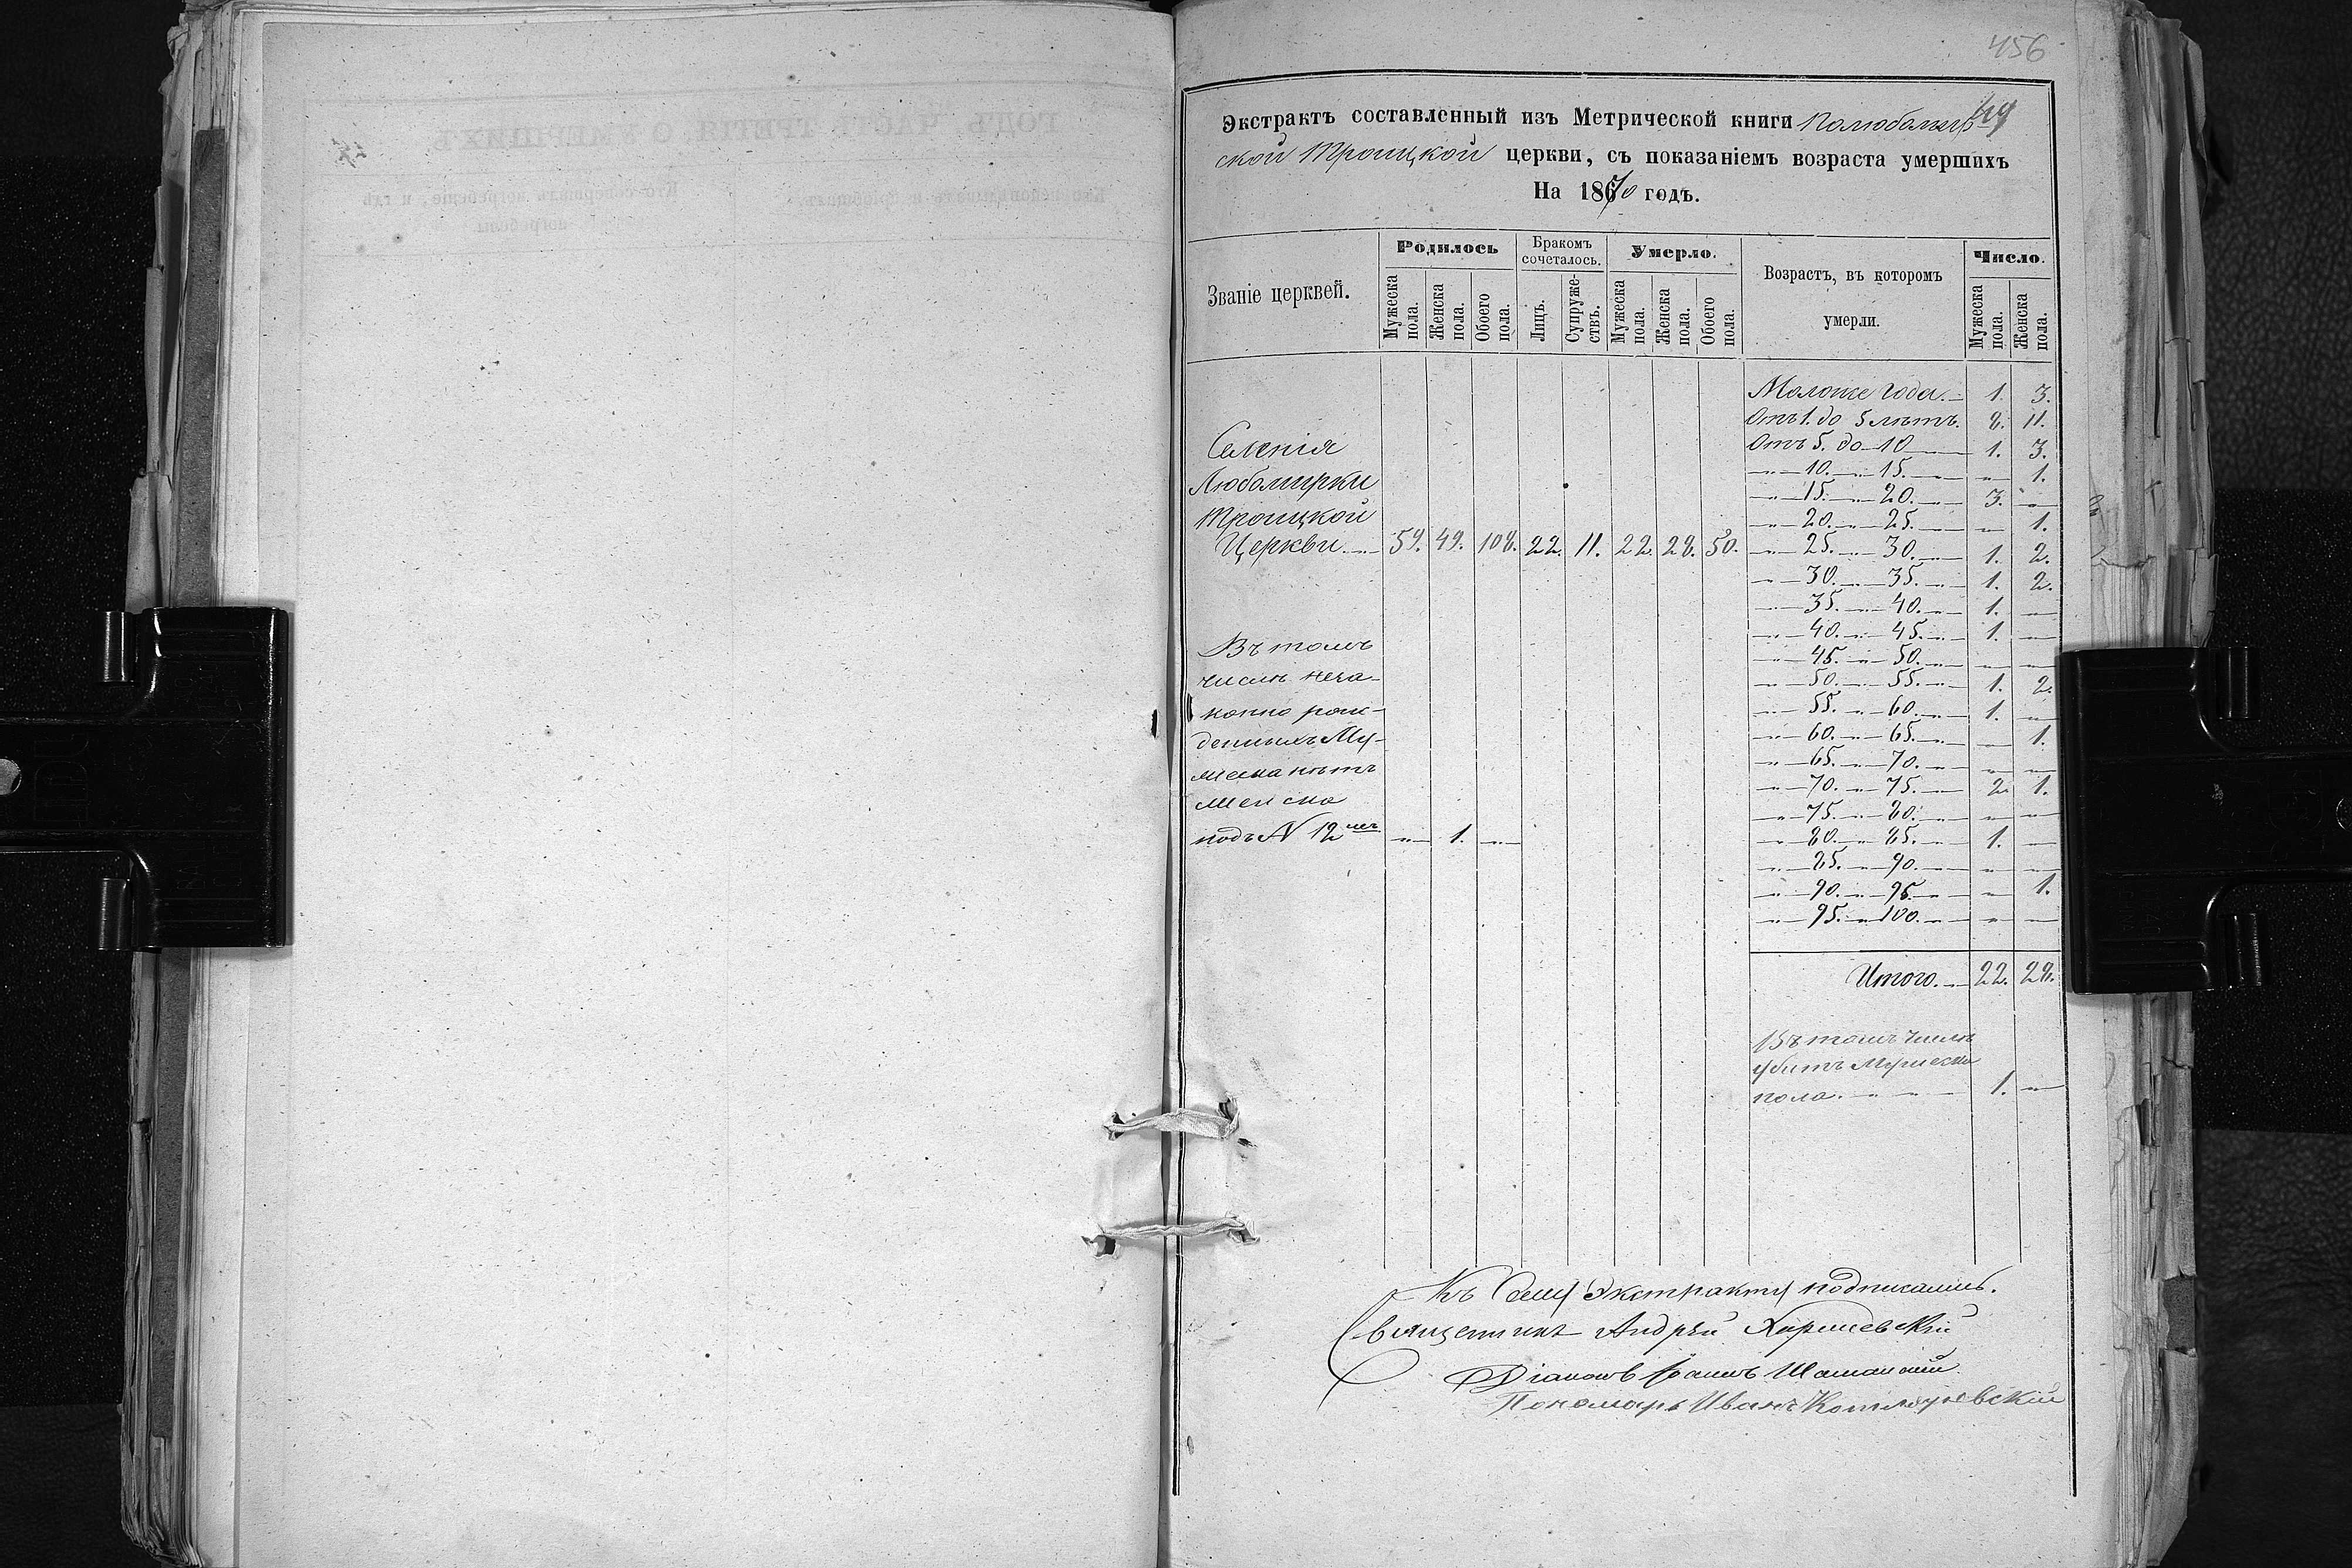 456
49
Экстрактъ составленный изъ Метрической книги Полюбомир
ской Троицкой церкви, съ показаніемъ возраста умершихъ
На 1870 годъ.
Званіе церквей.
Родилось
Бракомъ сочеталось.
Умерло.
Возрастъ, въ которомъ умерли.
Число.
Мужеска пола.
Женска пола.
Обоего пола.
Лицъ.
Супружествъ.
Мужеска пола.
Женска пола.
Обоего пола.
Мужеска пола.
Женска пола.
Селенія
Любомирки
Троицкой
Церкви 59. 49. 108. 22. 11. 22. 28. 50.
Въ томъ
числѣ неза-
конно рож-
денныхъ Му-
жеска нѣтъ
Женска
подъ N 12мъ " 1. "
Моложе года. 1. 3.
Отъ 1. до 5 лѣтъ. 8. 11.
Отъ 5. до 10 1. 3.
" 10. " 15. " " 1.
" 15. " 20. " 3. "
" 20. " 25. " " 1.
" 25. " 30. " 1. 2.
" 30. " 35. " 1. 2.
" 35. " 40. " 1. "
" 40. " 45. " 1. "
" 45. " 50. " " "
" 50. " 55. " 1. 2.
" 55. " 60. " 1. "
" 60. " 65. " " 1.
" 65. " 70. " " "
" 70. " 75. " 2. 1.
" 75. " 80. " " "
" 80. " 85. " 1. "
" 85. " 90. " " "
" 90. " 95. " " 1.
" 95. " 100. " " "
Итого. 22. 28.
Въ томъ числѣ
убитъ Мужеска
пола. 1. "
Къ Сему Экстракту подписались.
Священникъ Андрѣй
Діаконъ Іоаннъ
Пономарь Иванъ Котляревскій